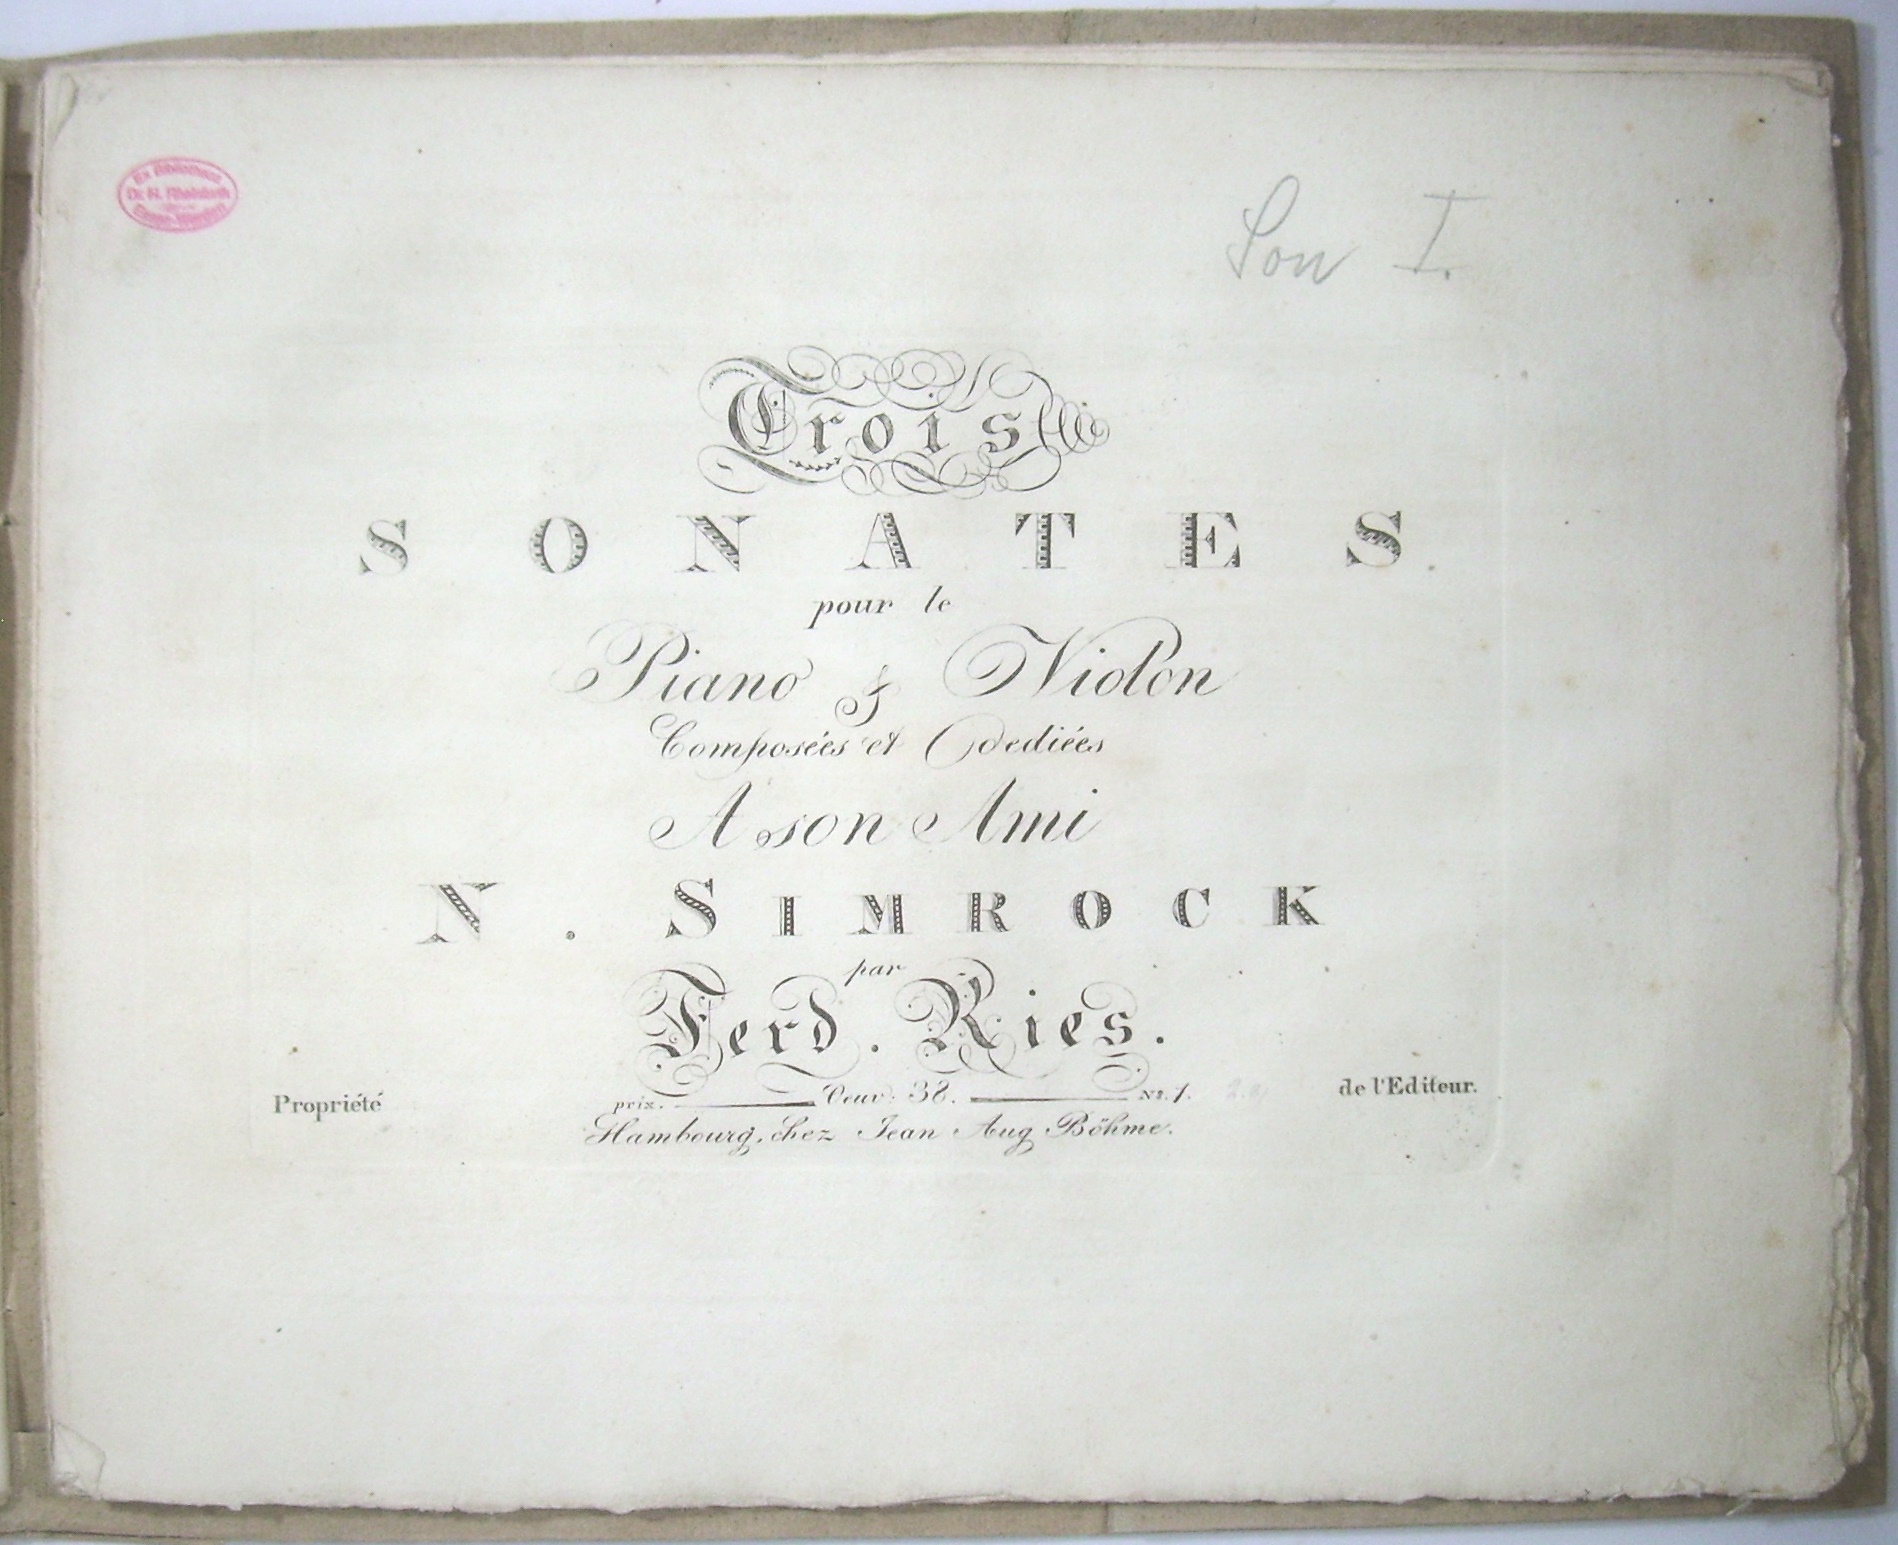 Ex Bibliotheca
Dr. H. Rheinforth
Essen-Werden
Son I.
Trois
SONATES
pour le
Piano & Violon
Composées et Dediées
A son Ami
N. SIMROCK
par
Ferd. Ries.
Propriété prix. Oeuv: 38. No. 1. de l'Editeur.
Hambourg, chez Jean Aug Böhme.